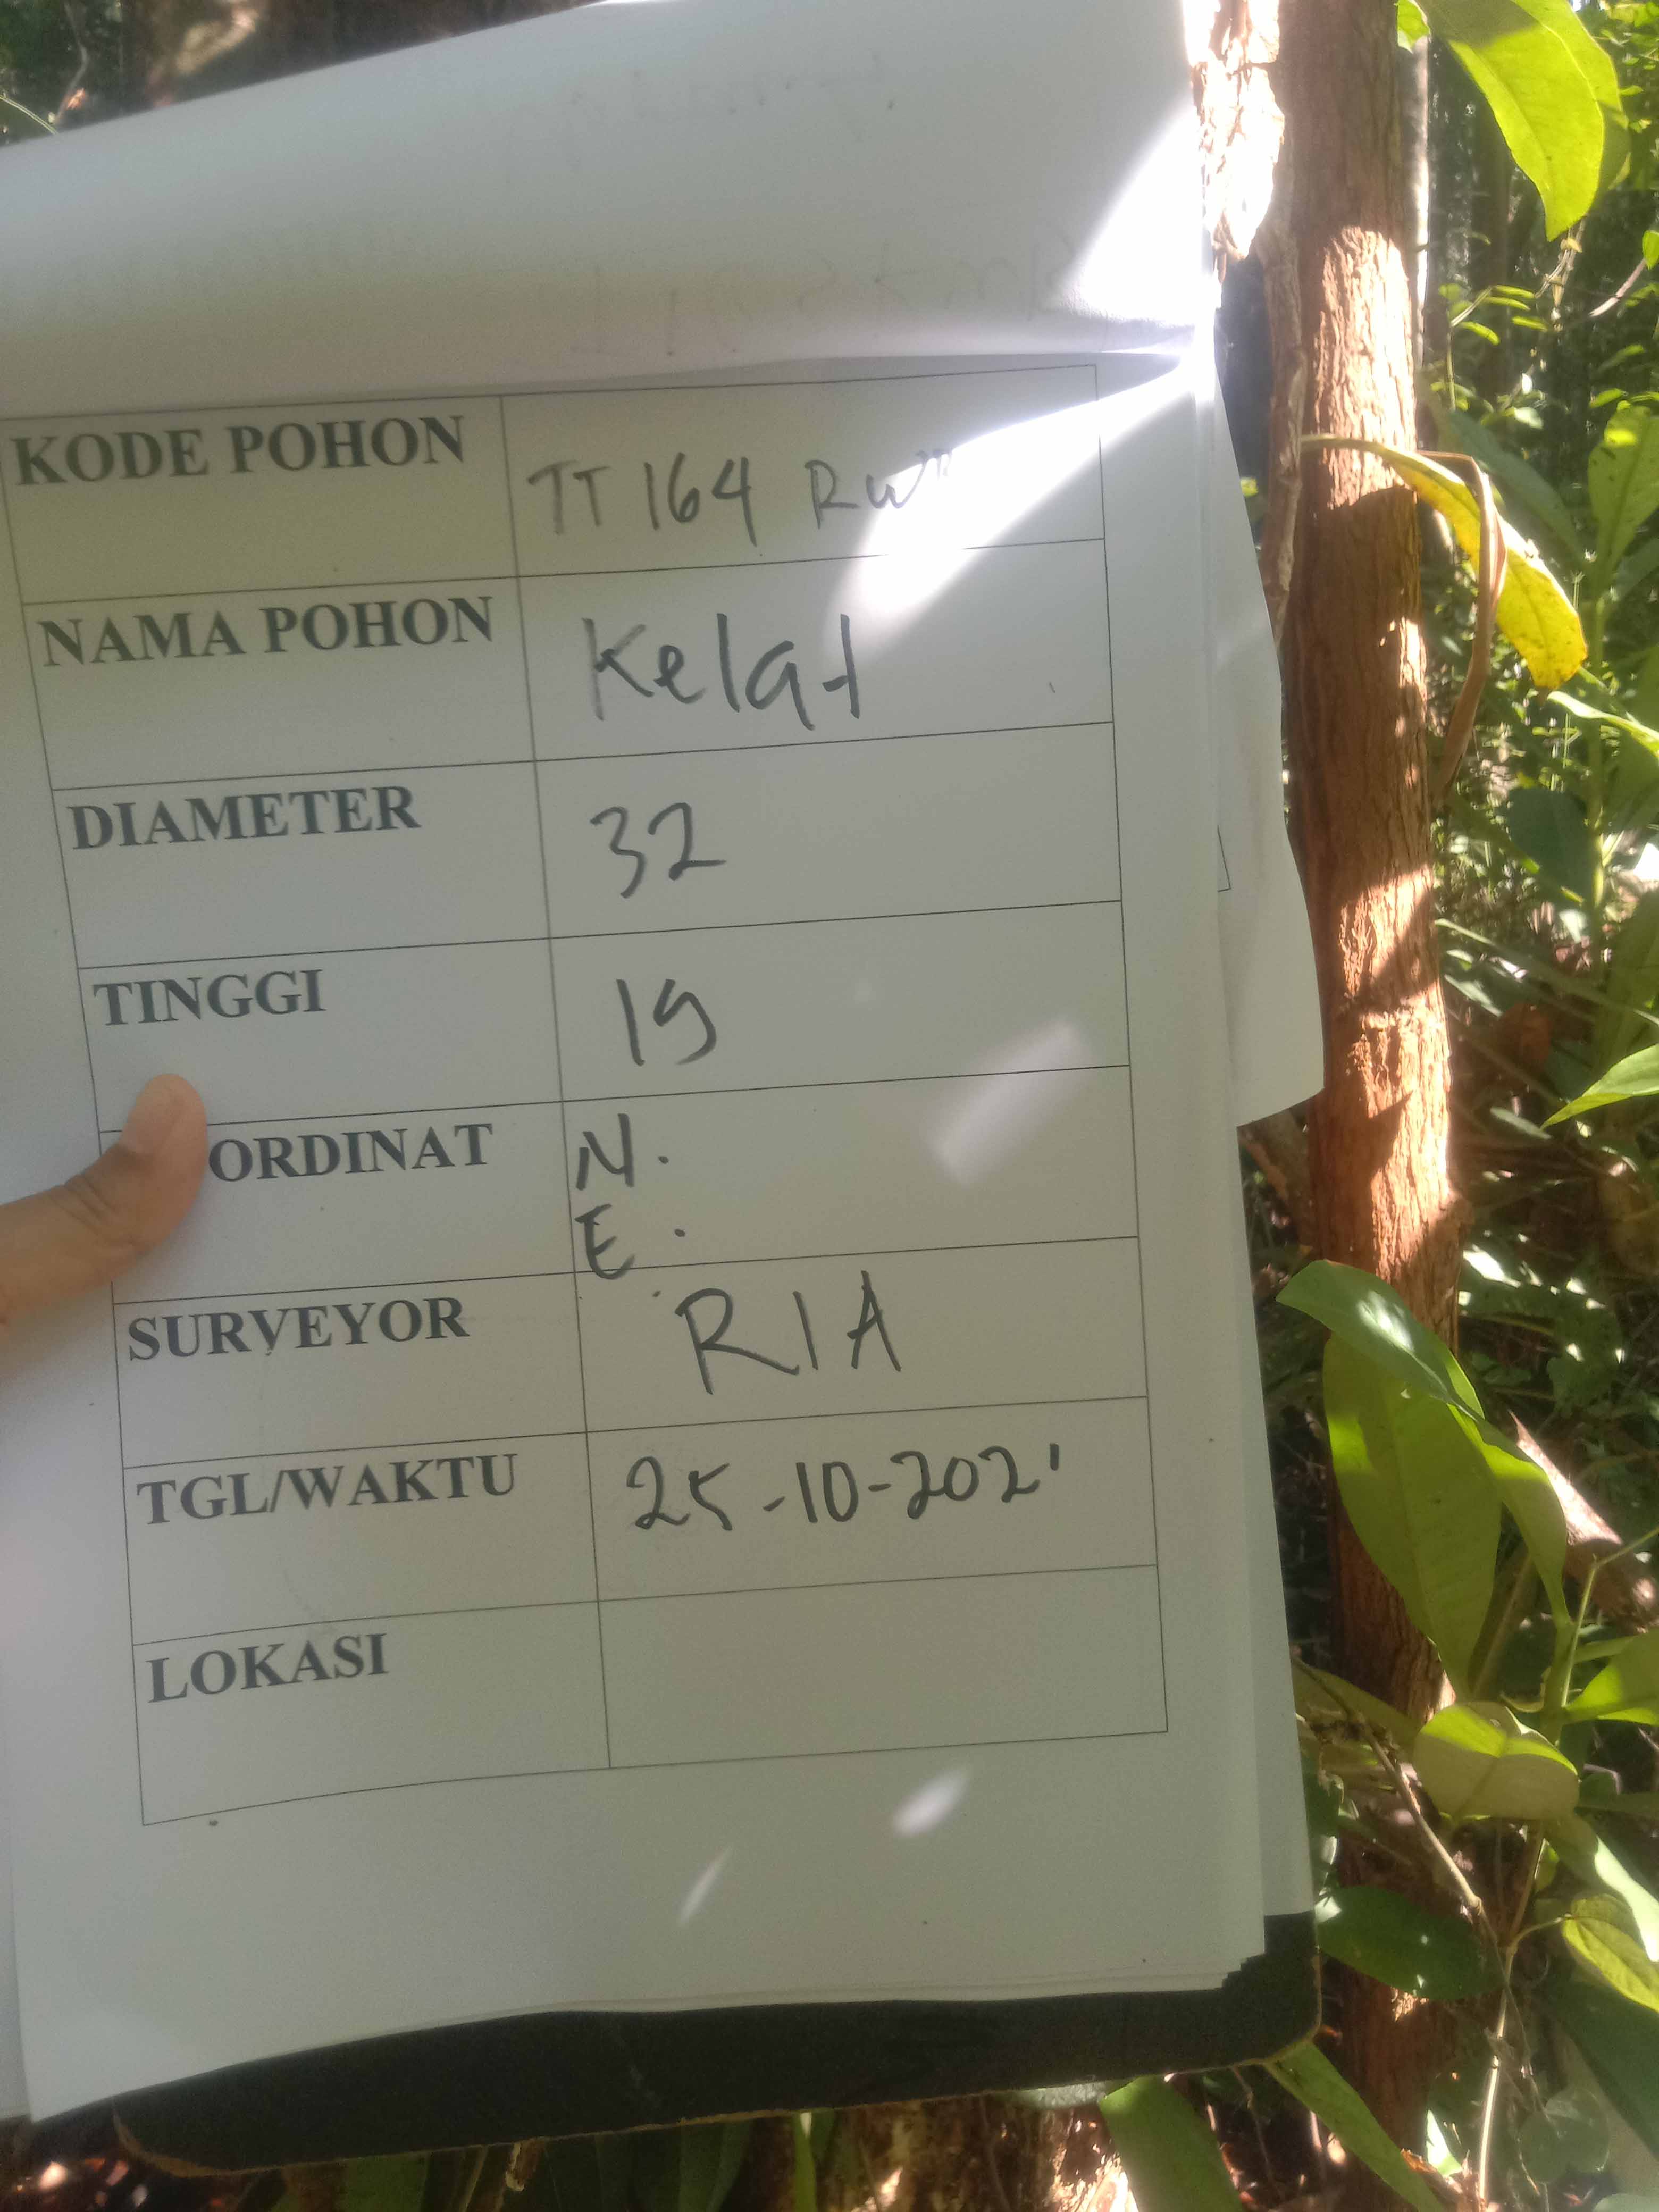 KODE POHON TT 164
NAMA POHON Kelat
DIAMETER 32
TINGGI 19
ORDINAT N.
E.
SURVEYOR RIA
TGL/WAKTU 25-10-2021
LOKASI